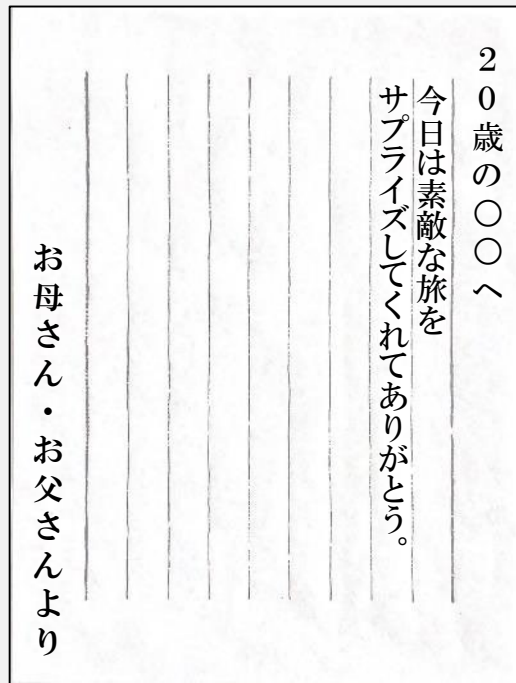 20歳の〇〇へ
今日は素敵な旅を
サプライズしてくれてありがとう。
お母さん・お父さんより